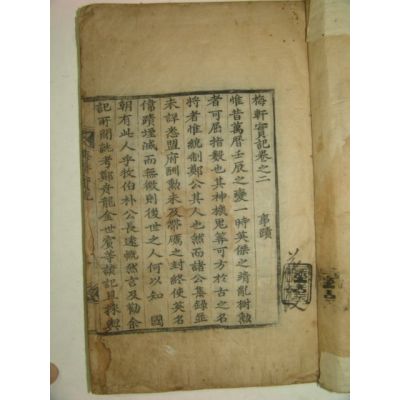 梅軒實記卷之二
事蹟
惟昔萬曆壬辰之變一時英傑之靖亂樹勲
者可屈指數也其神機鬼筭可方於古之名
將者惟統制鄭公其人也然而諸公集錄並
未詳悉盟府酬勲未及帶礪之封終使英名
偉蹟堙滅而無徵則後世之人何以知 國
朝有此人乎牧伯朴公長遠慨然言及勸余
記所聞玆考鄭舟龍金世賓等讀記且採輿